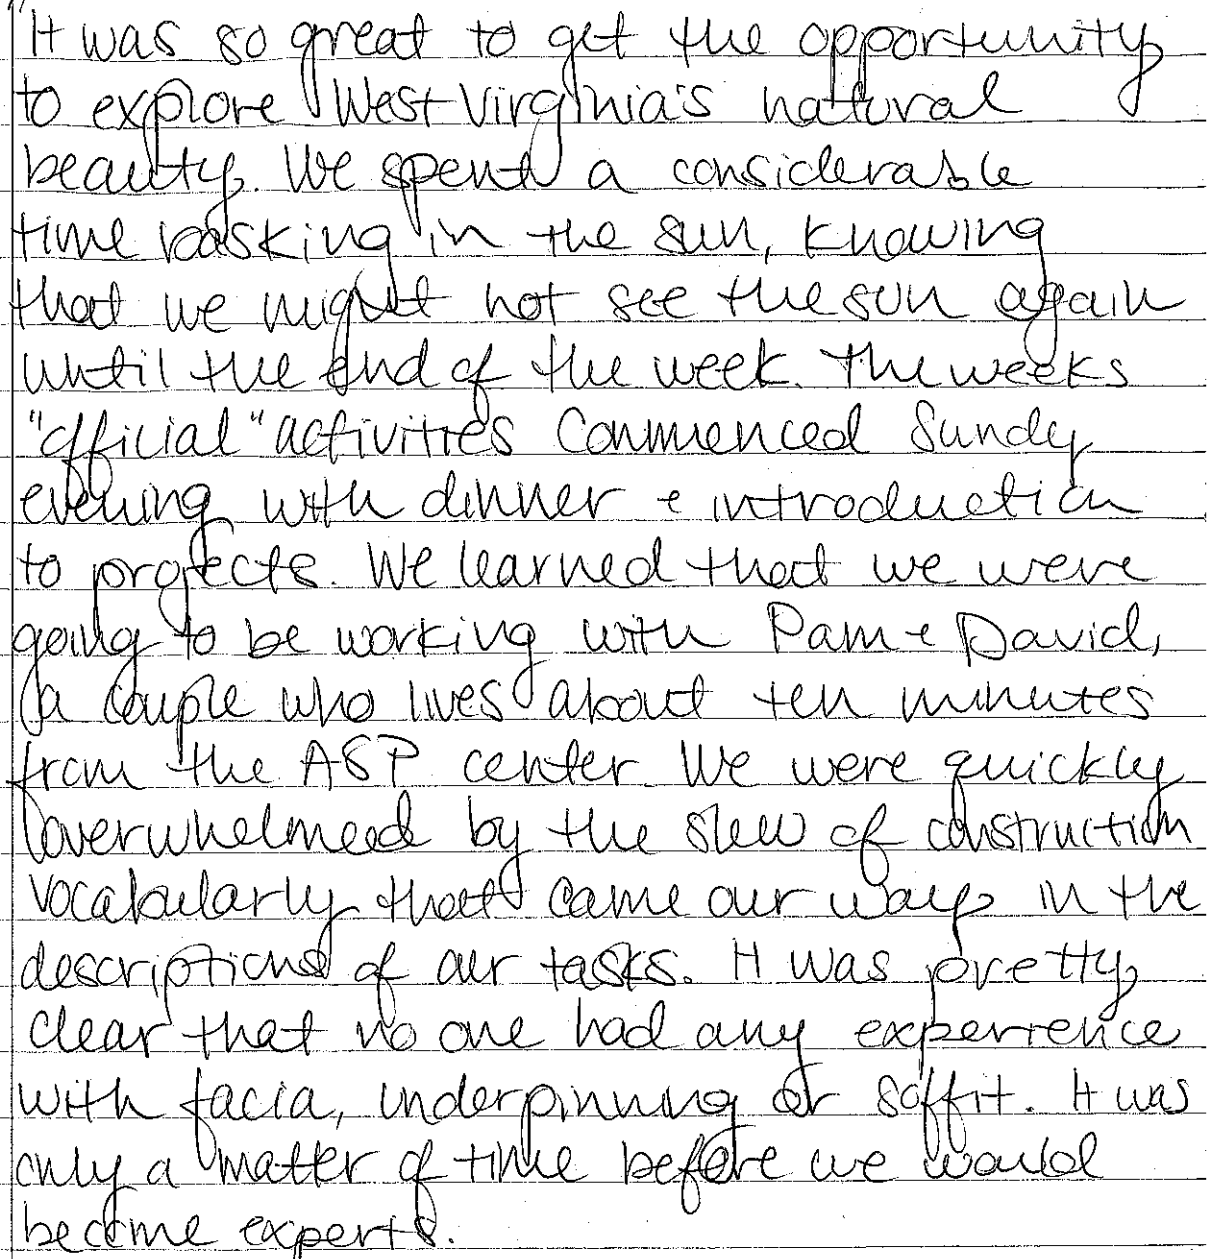 "It was so great to get the opportunity
to explore West Virginia's natural
beauty. We spent a considerable
time basking in the sun, knowing
that we might not see the sun again
until the end of the week. The weeks
"official" activities commenced Sundy
evening with dinner + introduction
to projects. We learned that we were
going to be working with Pam + David,
a couple who lives about ten minutes
from the ASP center. We were quickly
overwhelmed by the slew of construction
vocabularly that came our way in the
descriptions of our tasks. It was pretty
clear that no one had any experience
with facia, underpinning or soffit. It was
only a matter of time before we would
become experts.